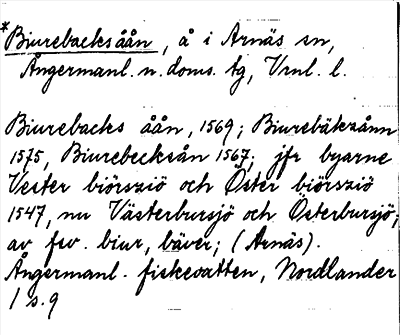 *Biurebacksåån, å i Arnäs sn,
Ångermanl. n. doms. tg, Vrnl. l.
Biurebacks åån, 1569; Biurebäksånn
1575, Biurebecksån 1567; jfr byarne
Vester biörsziö och Öster biörsziö
1547, nu Västerbursjö och Österbursjö;
av fsv. biur, bäver; (Arnäs).
Ångermanl. fiskevatten, Nordlander
1 s. 9